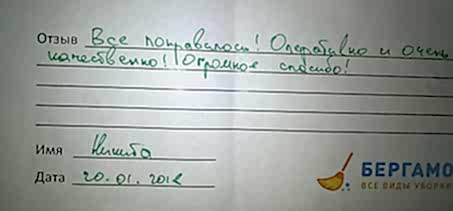 Отзыв Все понравилось! Оперативно и очень
качественно! Огромное спасибо!
Имя Никита
Дата 20.01.2018
БЕРГАМО
ВСЕ ВИДЫ УБОРКИ